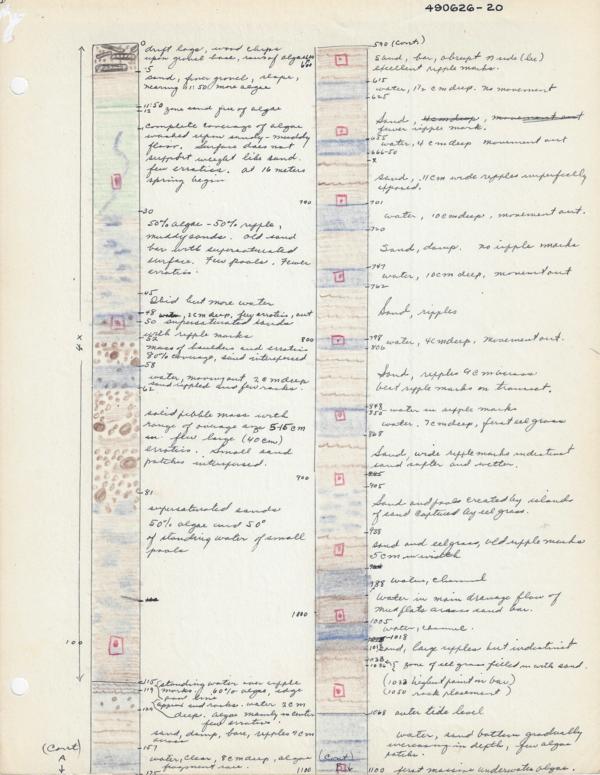 490626-20
0
drift logs, wood chips
upon gravel base, rows of algae
5
sand, finer gravel, slope,
nearing 11:50, more algae
11:50
12 zone sand free of algae
complete coverage of algae
washed upon sandy-muddy
floor. Surface does not
support weight like sand.
few erratics. At 16 meters
spring begin
30
50% algae - 50% ripple,
muddy sands. Old sand
bar with supersaturated
surface. Few pools. Fewer
erratics.
45
Ibid but more water
48 2cm deep, few erratics, out
50 supersaturated sands
with ripple marks
52
mass of boulders and erratics
80% coverage, sand interspersed
58
water, moving out, 2 cm deep
sand rippled and few rocks.
62
solid pebble mass with
range of average size 5-15 cm
in few large (40 cm)
erratics. Small sand
patches interspersed.
81
supersaturated sands
50% algae and 50%
of standing water of small
pools
100
115 standing water over ripple
119 marks. 60% algae, edge
and rocks. water 2 cm
deep. algae mainly in center
few erratics.
sand, damp, bare, ripples 9 cm
across
157
water, clear, 8cm deep, algae
(Cont)
A
590 (Cont.)
600
Sand, bar, abrupt N side (lee)
excellent ripple marks.
615
water, 1 1/2 cm deep. no movement
625
Sand,
fewer ripple mark.
655
water, 4 cm deep movement out
666-50
Sand, 11 cm wide ripples imperfectly
exposed.
700
701
water, 10 cm deep, movement out.
720
Sand, damp. no ripple marks
747
water, 10 cm deep, movement out
762
Sand, ripples
798
800
water, 4 cm deep. Movement out.
806
Sand, ripples 9 cm across
best ripple marks on transect.
848
850 water in ripple marks
water. 7 cm deep, first eel grass
868
Sand, wide ripple marks indistinct
sand softer and wetter.
900
905
Sand and pools created by islands
of sand captured by eel grass.
938
sand and eel grass, old ripple marks
5 cm in width
988 water, channel
water in main drainage flow of
mudflats across sand bar.
1000
1005
water, channel.
1018
sand, large ripples but indistinct
zone of eel grass filled in with sand.
(1033 highest point on bar)
(1050 rock placement)
1068 outer tide level
water, sand bottom gradually
increasing in depth, few algae
patches.
(Cont)
1100
1100 first massive underwater algae.